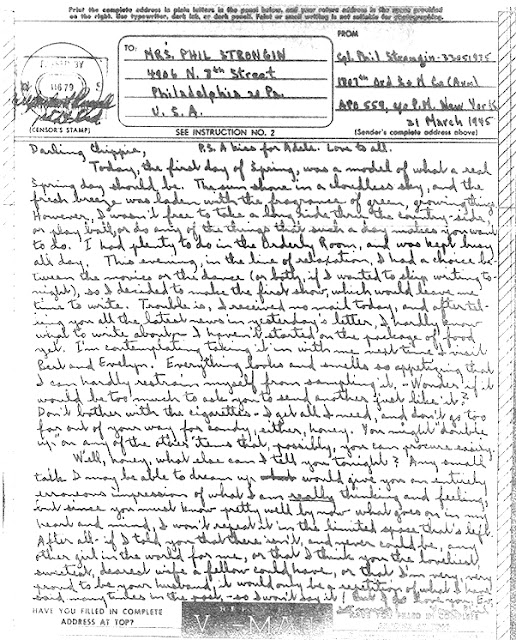 Print the complete address in plain letters in the panel below, and your return address in the space provided
on the right. Use typewriter, dark ink, or dark pencil. Faint or small writing is not suitable for photographing.
TO:
MRS. PHIL STRONGIN
4906 N. 8th Street
Philadelphia 20 Pa.
U.S.A.
FROM
Cpl. Phil Strongin-
1807th Ord S & M Co (Avn)
APO 559, c/o P.M. New York
21 March 1945
(CENSOR'S STAMP)
SEE INSTRUCTION NO. 2
(Sender's complete address above)
Darling Chippie, P.S. A kiss for Adele. Love to all.
Today, the first day of Spring, was a model of what a real
Spring day should be. The sun shone in a cloudless sky, and the
fresh breeze was laden with the fragrance of green, growing things.
However, I wasn't free to take a long ride thru the country-side,
or play ball, or do any of the things that such a day makes you want
to do. I had plenty to do in the Orderly Room, and was kept busy
all day. This evening, in the line of relaxation, I had a choice be-
tween the movies or the dance (or both, if I wanted to skip writing to-
night), so I decided to make the first show, which would leave me
time to write. Trouble is, I received no mail today, and after tel-
ling you all the latest news in yesterday's letter, I hardly know
what to write about. I haven't started on the package of food
yet. I'm contemplating taking it in with me next time I visit
Bert and Evelyn. Everything looks and smells so appetizing that
I can hardly restrain myself from sampling it. Wonder if it
would be too much to ask you to send another just like it?
Don't bother with the cigarettes - I get all I need, and don't go too
far out of your way for candy, either, honey. You might "double
up" on any of the other items that, possibly, you can procure easily.
Well, honey, what else can I tell you tonight? Any small
talk I may be able to dream up would give you an entirely
erroneous impression of what I am really thinking and feeling,
but since you must know pretty well by now what goes on in my
heart and mind, I won't repeat it in the limited space that's left.
After all, if I told you that there isn't, and never could be, any
other girl in the world for me, or that I think you the loveliest
sweetest, dearest wife a fellow could have, or that I'm very, very
proud to be your husband, it would only be a repetition of what I have
said many times in the past - so I won't say it! But I do love you
HAVE YOU FILLED IN COMPLETE
ADDRESS AT TOP?
V-MAIL
HAVE YOU FILLED IN COMPLETE